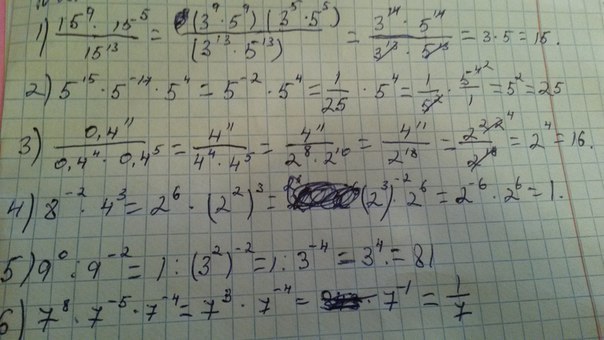 1) 15⁹ · 15⁻⁵ / 15¹³ = (3⁹ · 5⁹) (3⁵ · 5⁵) / (3¹³ · 5¹³) = 3¹⁴ · 5¹⁴ / 3¹³ · 5¹³ = 3 · 5 = 15.
2) 5¹⁵ · 5⁻¹⁷ · 5⁴ = 5⁻² · 5⁴ = 1/25 · 5⁴ = 1/5² · 5⁴ ²/1 = 5² = 25
3) 0,4¹¹ / 0,4⁴ · 0,4⁵ = 4¹¹ / 4⁴ · 4⁵ = 4¹¹ / 2⁸ · 2¹⁰ = 4¹¹ / 2¹⁸ = 2²² ⁴ / 2¹⁸ = 2⁴ = 16.
4) 8⁻² 4³ = 2⁶ · (2²)³ = (2³)⁻² · 2⁶ = 2⁻⁶ · 2⁶ = 1.
5) 9⁰ : 9⁻² = 1 : (3²)⁻² = 1 : 3⁻⁴ = 3⁴ = 81
6) 7⁸ · 7⁻⁵ · 7⁻⁴ = 7³ · 7⁻⁴ = · 7⁻¹ = 1/7